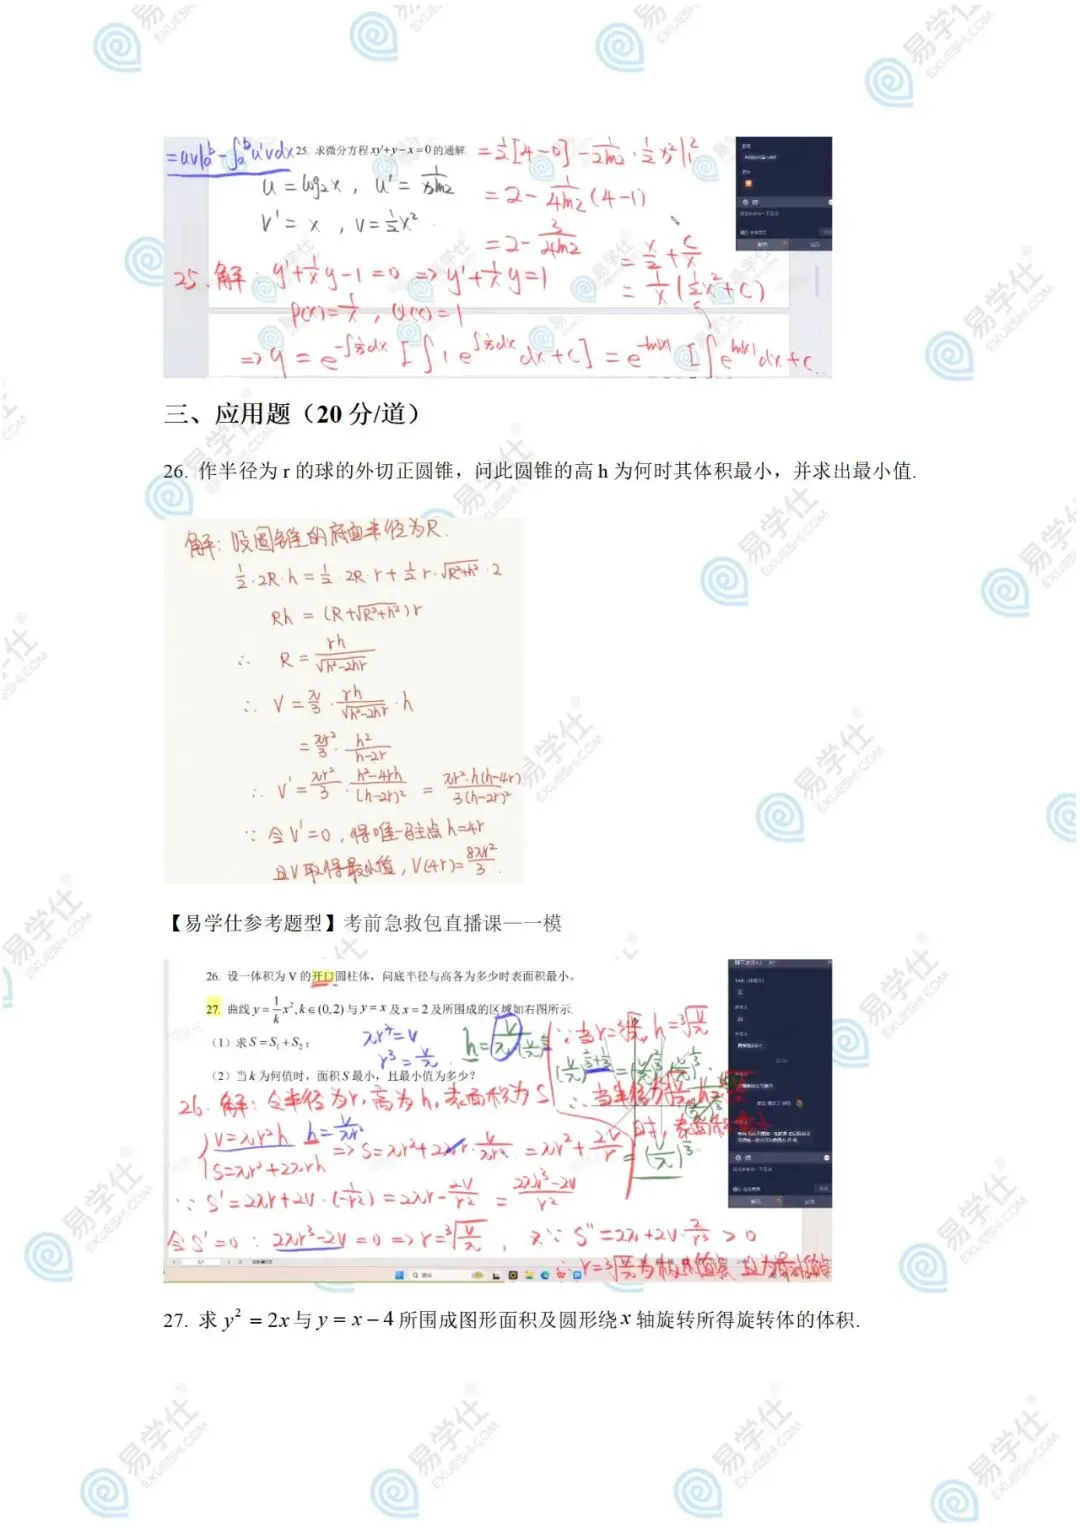 =uv|ₐᵇ-∫ₐᵇu'vdx 25. 求微分方程 xy'+y-x=0 的通解. =½[4-0]-1/(2ln2)·½x²|₁²
u=log₂x, u'=1/(xln2) =2-1/(4ln2)(4-1)
v'=x, v=½x² =2-3/(4ln2) =x/2+C/x
25.解: y'+1/x y-1=0 ⇒ y'+1/x y=1 =1/x(½x²+C)
p(x)=1/x, Q(x)=1
⇒ y=e^(-∫1/x dx)[∫1·e^(∫1/x dx)dx+C]=e^(-ln|x|)[∫e^(ln|x|)dx+C
三、应用题（20 分/道）
26. 作半径为 r 的球的外切正圆锥，问此圆锥的高 h 为何时其体积最小，并求出最小值.
解: 设圆锥的底面半径为R.
½·2R·h=½·2R·r+½r·√(R²+h²)·2
Rh=(R+√(R²+h²))r
∴ R=rh/√(h²-2hr)
∴ V=π/3·rh/√(h²-2hr)·h
=πr²/3·h²/(h-2r)
∴ V'=πr²/3·(h²-4rh)/(h-2r)²=πr²·h(h-4r)/3(h-2r)²
∵ 令V'=0, 得唯一驻点h=4r
且V取得最小值, V(4r)=8πr²/3.
【易学仕参考题型】考前急救包直播课—一模
26. 设一体积为 V 的开口圆柱体，问底半径与高各为多少时表面积最小。
27. 曲线 y=1/k x², k∈(0,2) 与 y=x 及 x=2 及所围成的区域如右图所示.
（1）求 S=S₁+S₂；
（2）当 k 为何值时，面积 S 最小，且最小值为多少？
πr³=V
r³=V/π
∵当r=³√(V/π), h=³√(V/π)
26. 解: 令半径为r, 高为h, 表面积为S
{V=πr²h h=V/(πr²)
S=πr²+2πrh ⇒ S=πr²+2πr·V/(πr²)=πr²+2V/r
∵ S'=2πr+2V·(-1/r²)=2πr-2V/r²=(2πr³-2V)/r²
令S'=0: 2πr³-2V=0 ⇒ r=³√(V/π), 又∵ S''=2π+2V·2/r³>0
∴ r=³√(V/π)为极小值点 且为最小值点
27. 求 y²=2x 与 y=x-4 所围成图形面积及圆形绕 x 轴旋转所得旋转体的体积.
易学仕
EXUESHI.COM